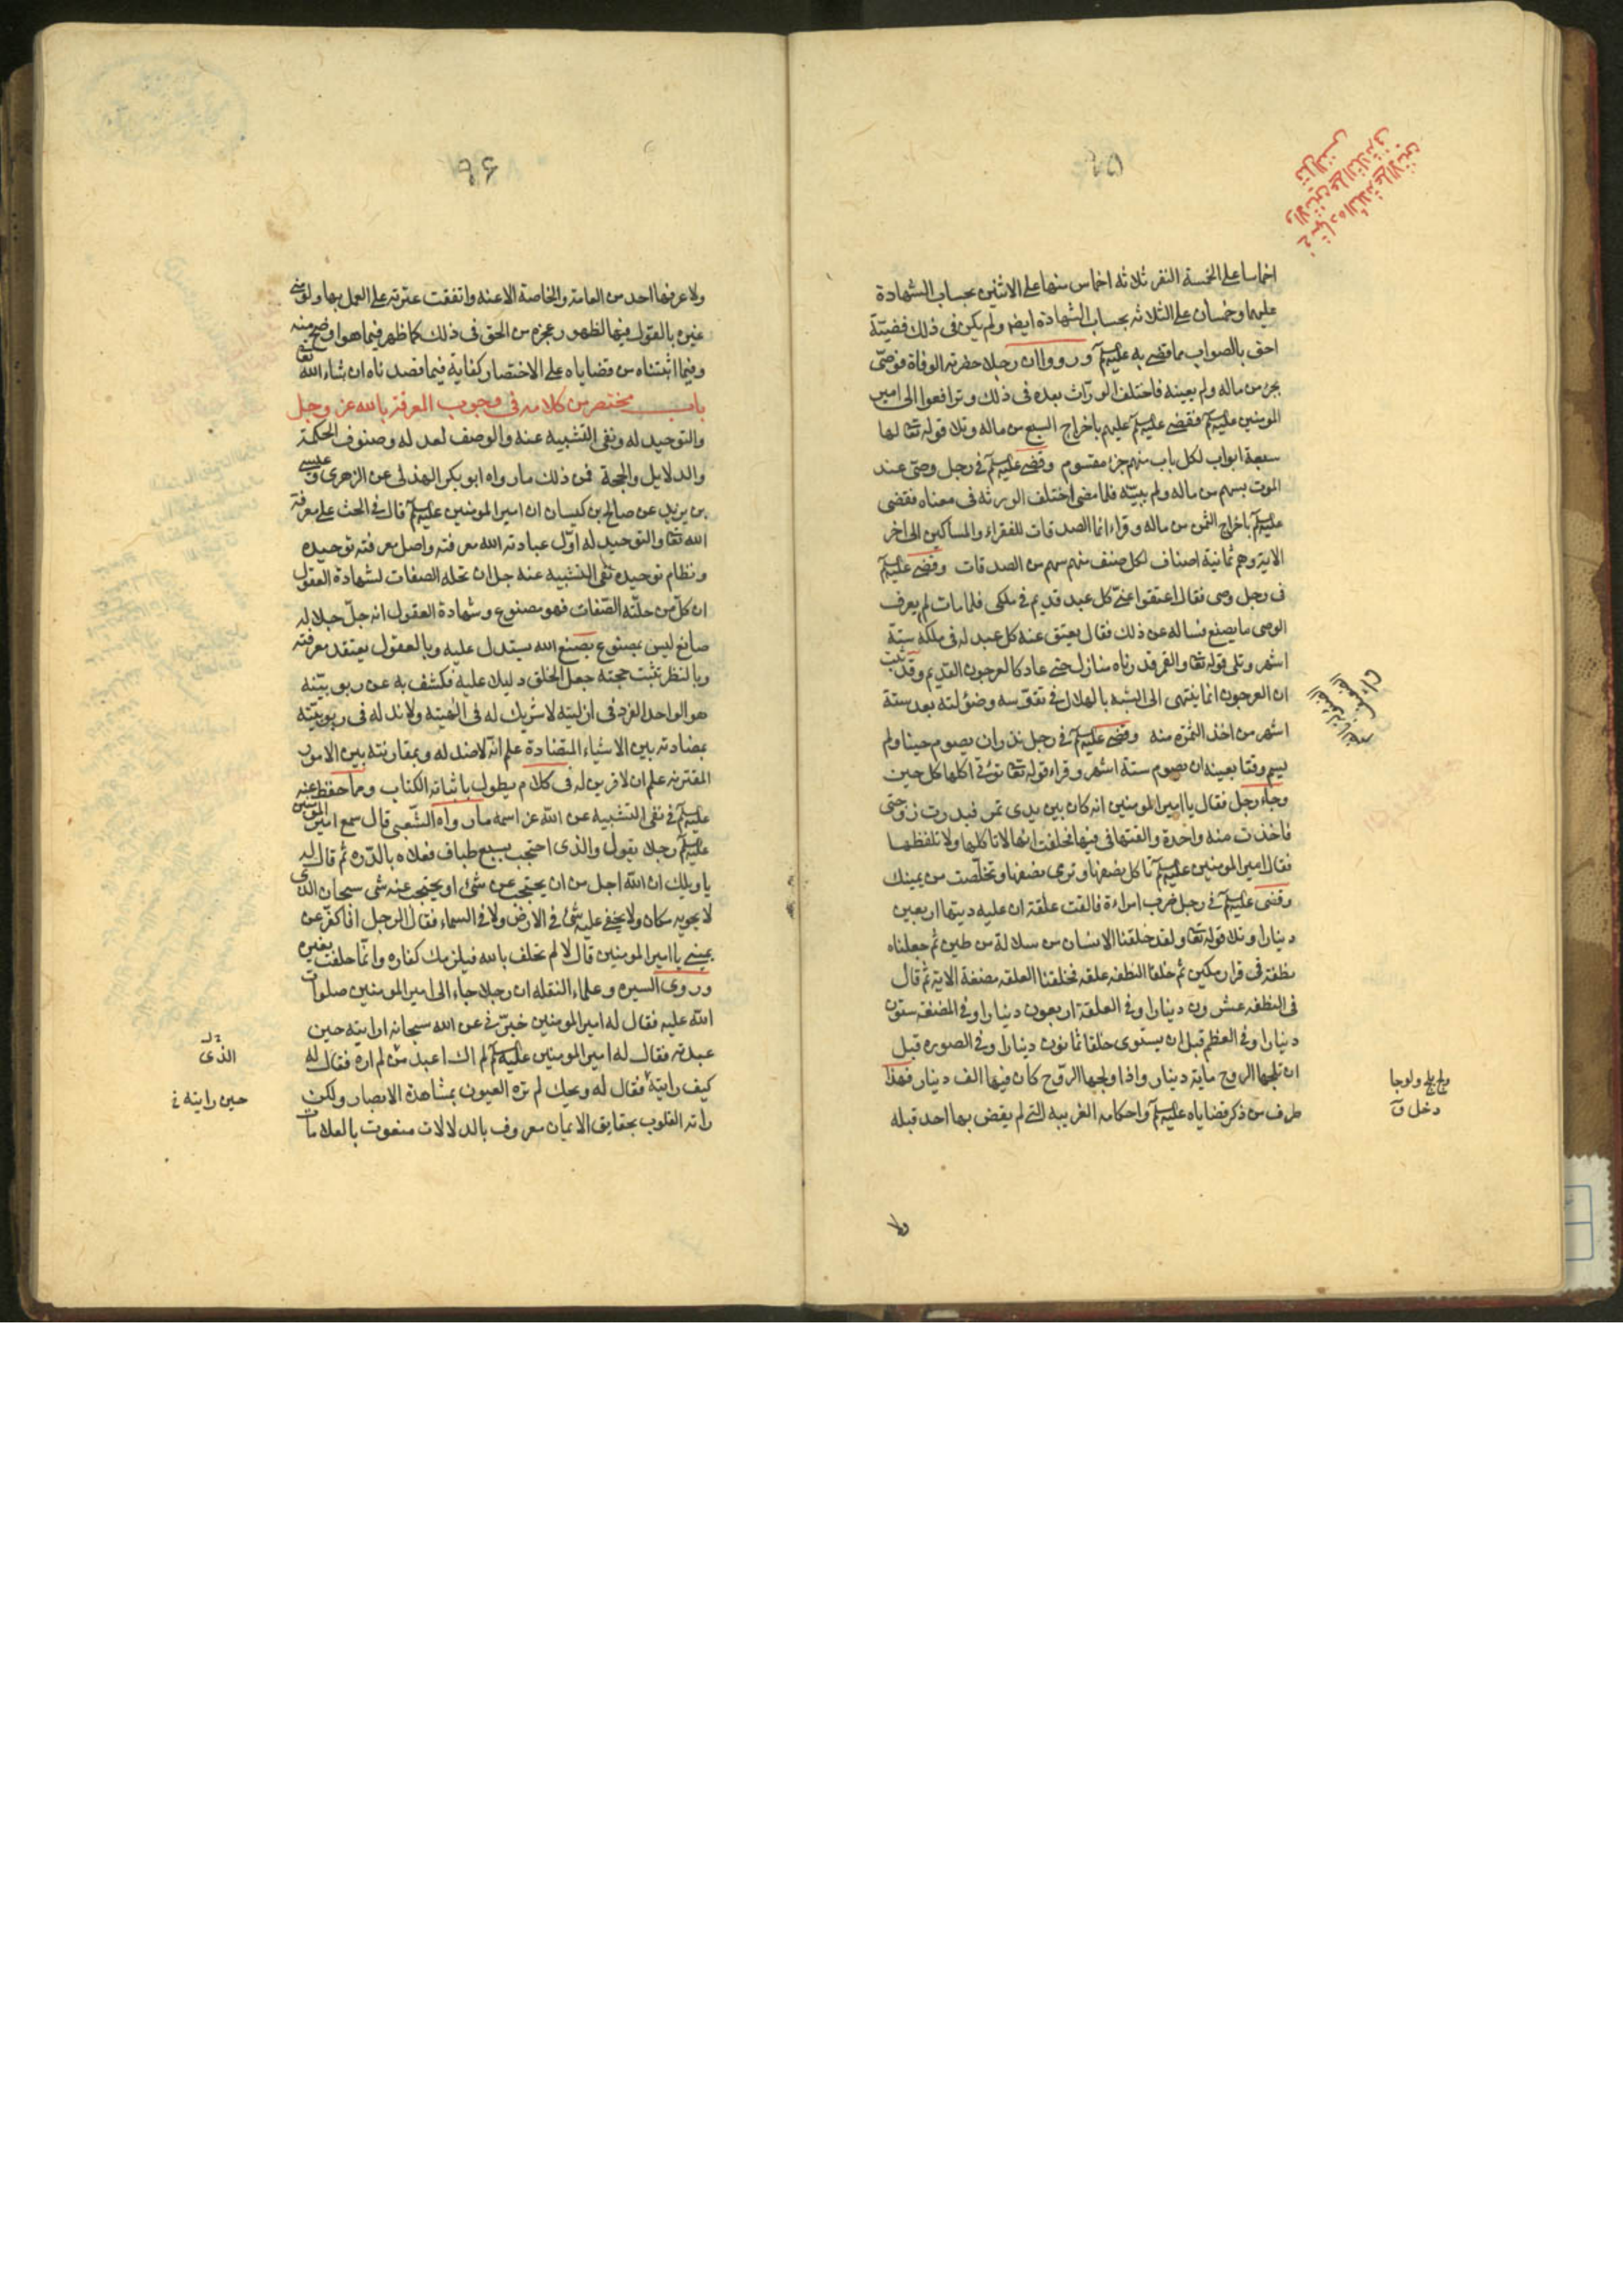 ٩٥
اخماسا على الخمسة النفر ثلاثة اخماس منها على الاثنين بحساب الشهادة
عليهما وخمسان على الثلاثه بحساب الشهادة ايضا ولم يكن في ذلك قضيّة
احق بالصواب مما قضى به عليه السلم ورووا ان رجلا حضرته الوفاة فوصّى
بجزء من ماله ولم يعينه فاختلف الورّاث بعده في ذلك وترافعوا الى امير
المومنين عليه السلم فقضى عليه السلم عليهم باخراج السبع من ماله وتلا قوله تعا لها
سبعة ابواب لكل باب منهم جزء مقسوم وقضى عليه السلم في رجل وصّى عند
الموت بسهم من ماله ولم يبيّنه فلما مضى اختلف الورثه في معناه فقضى
عليه السلم باخراج الثمن من ماله وقراء انما الصدقات للفقراء والمساكين الى اخر
الاية وهم ثمانية اصناف لكل صنف منهم سهم من الصدقات وقضى عليه السلم
في رجل وصى فقال اعتقوا عنّي كل عبد قديم في ملكى فلما مات لم يعرف
الوصى ما يصنع فساله عن ذلك فقال يعتق عنه كل عبد له في ملكه ستة
اشهر وتلى قوله تعا والقمر قدرناه منازل حتى عاد كالعرجون القديم وقد ثبت
ان العرجون انما ينتهى الى الشبه بالهلال في تقوّسه وضؤلته بعد ستة
اشهر من اخذ الثمرة منه وقضى عليه السلم في رجل نذر ان يصوم حينا ولم
يسم وقتا بعينه ان يصوم ستة اشهر وقراء قوله تعا تؤتى اكلها كل حين
وجاءه رجل فقال يا امير المومنين انه كان بين يدى تمر فبدرت زوجتى
فاخذت منه واحدة والقتها في فيها فحلفت انها لا تاكلها ولا تلفظها
فقال امير المومنين عليه السلم تاكل نصفها وترمى نصفها وتخلّصت من يمينك
وقضى عليه السلم في رجل ضرب امراءة فالقت علقة ان عليه ديتها اربعين
دينارا وتلا قوله تعا ولقد خلقنا الانسان من سلالة من طين ثم جعلناه
نطفة في قرار مكين ثم خلقنا النطفه علقه فخلقنا العلقه مضغة الاية ثم قال
في النطفه عشرون دينارا وفي العلقة اربعون دينارا وفي المضغه ستون
دينارا وفي العظم قبل ان يستوى خلقا ثمانون دينارا وفي الصوره قبل
ان تلجها الروح ماية دينار واذا ولجها الروح كان فيها الف دينار فهذا
طرف من ذكر قضاياه عليه السلم واحكامه الغريبه التي لم يقض بها احد قبله
ولج يلج ولوجا
دخل ق
ولا
٩٦
ولا عرفها احد من العامة والخاصة الا عنه واتفقت عترته على العمل بها ولو منى
غيره بالقول فيها لظهر عجزه من الحق في ذلك كما ظهر فيما هو اوضح منه
وفيما اثبتناه من قضاياه على الاختصار كفاية فيما قصدناه ان شاء الله تعا
باب مختصر من كلامه في وجوب المعرفة بالله عز وجل
والتوحيد له ونفى التشبيه عنه والوصف لعدله وصنوف الحكمة
والدلايل والحجة فمن ذلك ما رواه ابو بكر الهذلى عن الزهرى وعيسى
بن يزيد عن صالح بن كيسان ان امير المومنين عليه السلم قال في الحث على معرفة
الله تعا والتوحيد له اوّل عبادته الله معرفته واصل معرفته توحيده
ونظام توحيده نفى التشبيه عنه جل ان تحله الصفات لشهادة العقول
ان كلّ من حلّته الصّفات فهو مصنوع وشهادة العقول انه جلّ جلاله
صانع ليس بمصنوع بصنع الله يستدل عليه وبالعقول يعتقد معرفته
وبالنظر تثبت حجته جعل الخلق دليلا عليه فكشف به عن ربوبيّته
هو الواحد الفرد في ازليته لا شريك له في الٰهيته ولا ند له في ربوبيّته
بمضادته بين الاشياء المتضادة علم انّه لا ضد له وبمقارنته بين الامور
المقترنه علم ان لا قرين له في كلام يطول باثباته الكتاب ومما حفظ عنه
عليه السلم في نفى التشبيه عن الله عز اسمه ما رواه الشّعبى قال سمع امير المومنين
عليه السلم رجلا يقول والذى احتجب بسبع طباق فعلاه بالدّره ثم قال له
يا ويلك ان الله اجل من ان يحتجب عن شئ او يحتجب عنه شى سبحان الذى
لا يحويه مكان ولا يخفى عليه شئ في الارض ولا في السماء فقال الرجل افاكفّر عن
يمينى يا امير المومنين قال لا لم تحلف بالله فيلزمك كفاره وانّما حلفت بغيره
وروى السيره وعلماء النقله ان رجلا جاء الى امير المومنين صلوات
الله عليه فقال له امير المومنين خبرّنى عن الله سبحانه ارايته حين
عبدته فقال له امير المومنين عليه السلم لم اك اعبد من لم اره فقال له
كيف رايته فقال له ويحك لم تره العيون بمشاهدة الابصار ولكن
راته القلوب بحقايق الايمان معروف بالدلالات منعوت بالعلامات
الذى
حين رايته خ